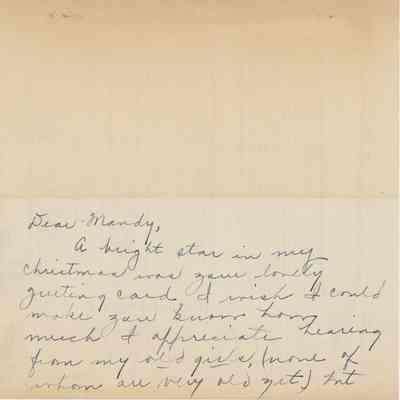 Dear Mandy,
A bright star in my
Christmas was your lovely
greeting card. I wish I could
make you know how
much I appreciate hearing
from my old girls, (none of
whom are very old yet.) but